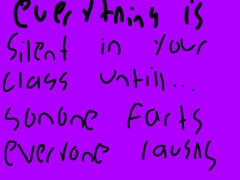 everything is
Silent in Your
class untill...
sonone farts
everyone laughs